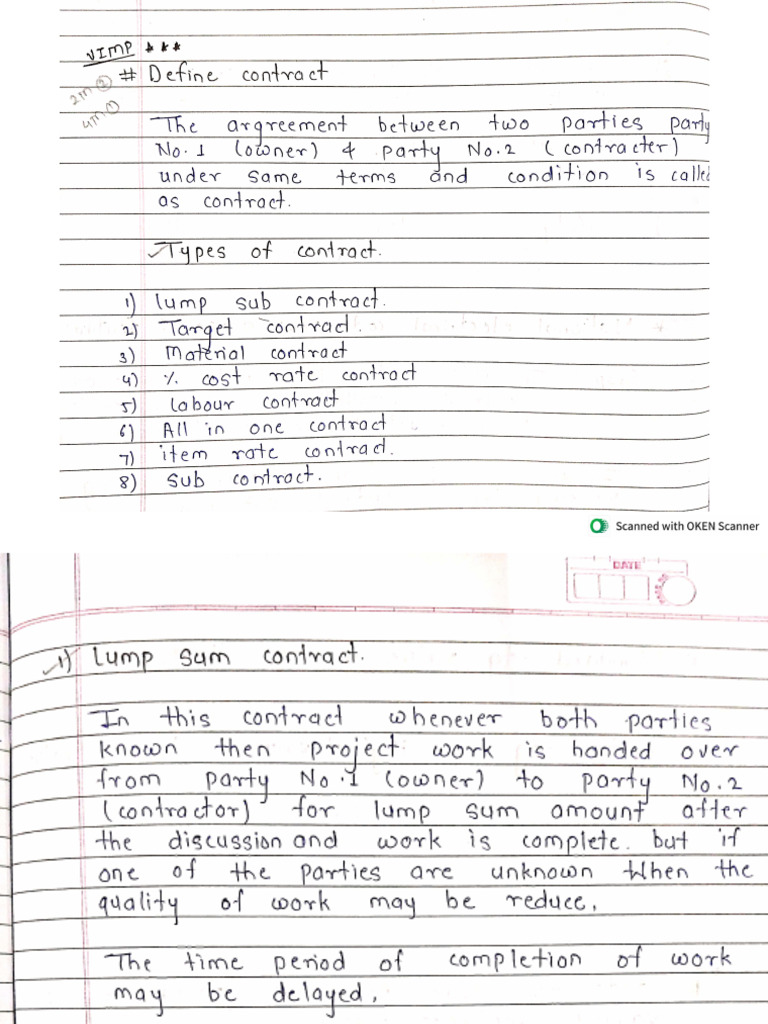 VIMP ***
2m ②
4m ①
# Define contract
The argreement between two parties party
No. 1 (owner) & party No.2 (contracter)
under same terms and condition is called
as contract.
✓Types of contract.
1) lump sub contract.
2) Target contract.
3) Material contract
4) % cost rate contract
5) labour contract
6) All in one contract
7) item rate contract.
8) Sub contract.
Scanned with OKEN Scanner
DATE
✓1) Lump sum contract.
In this contract whenever both parties
known then project work is handed over
from party No.1 (owner) to party No.2
(contractor) for lump sum amount after
the discussion and work is complete. but if
one of the parties are unknown when the
quality of work may be reduce,
The time period of completion of work
may be delayed,